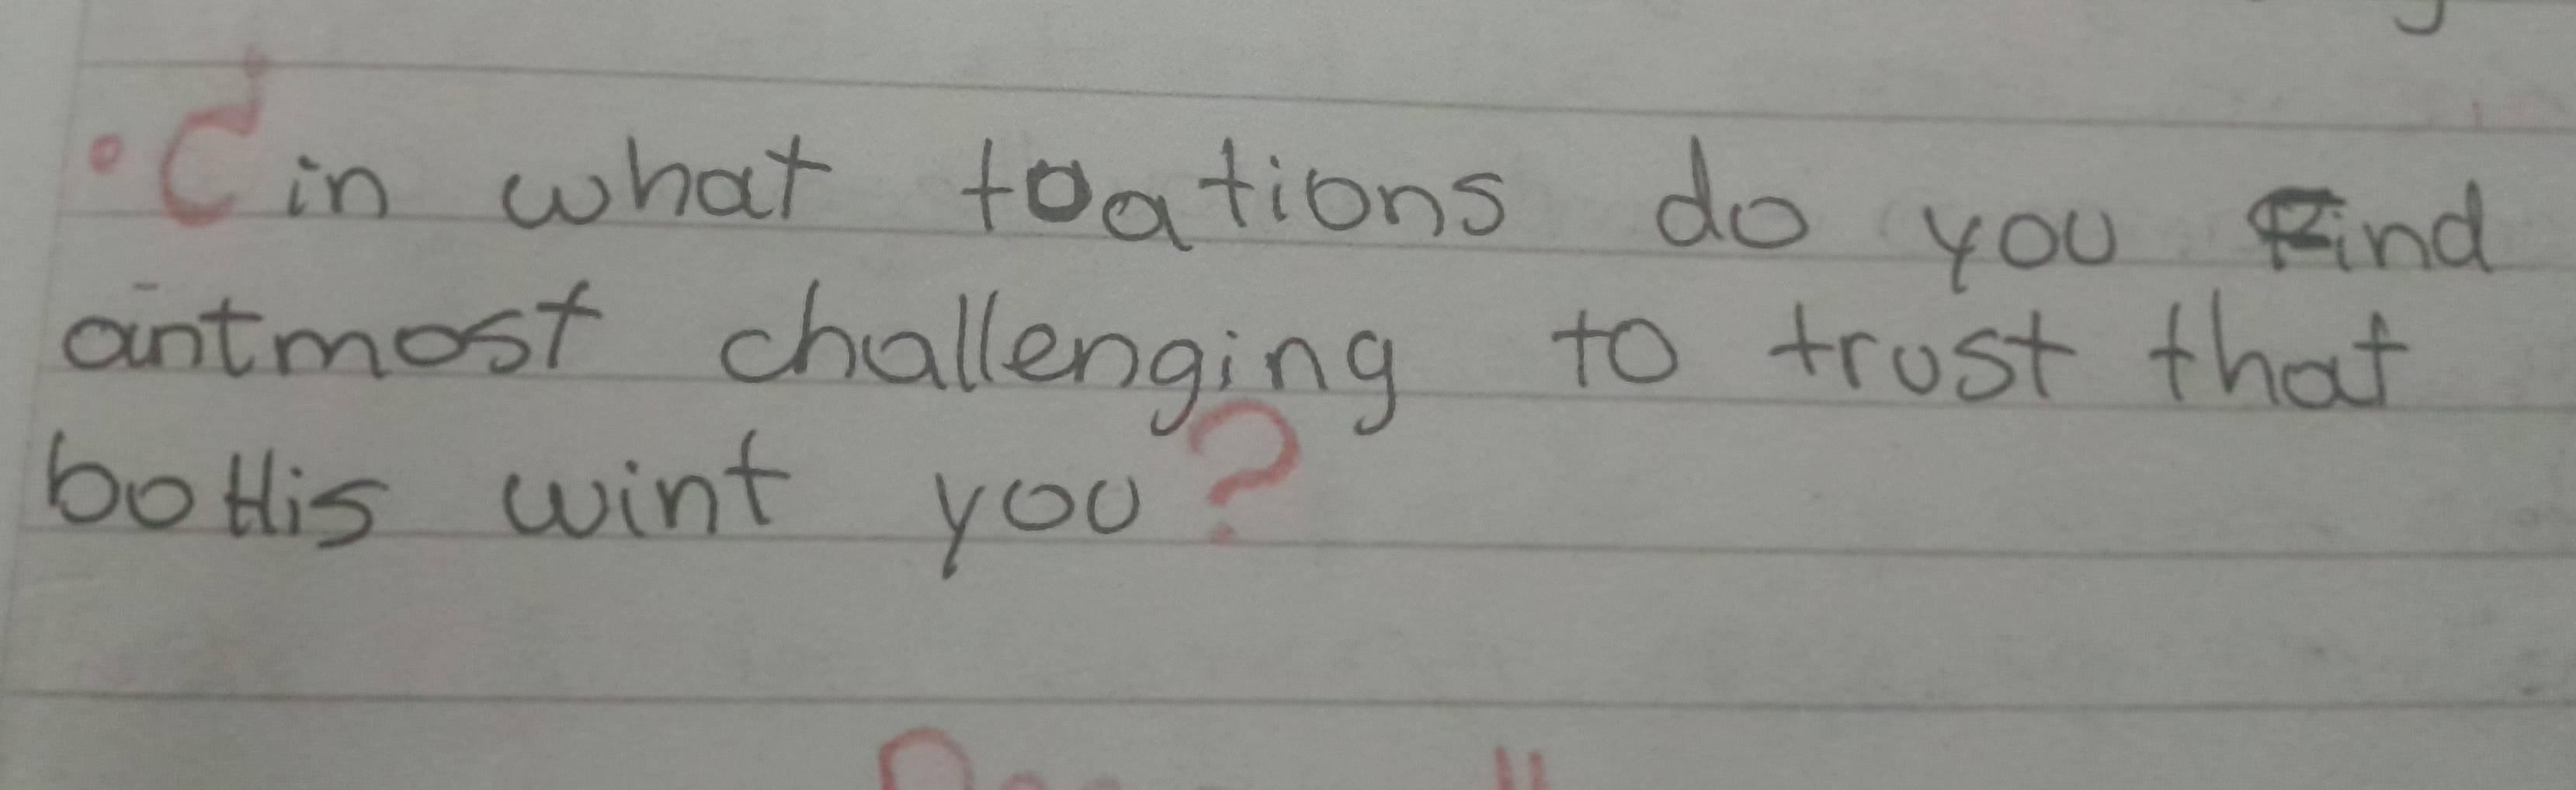 • ¿ in what toations do you find
antmost challenging to trust that
bottis wint you?